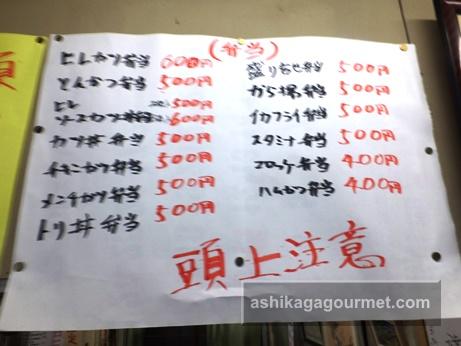 (弁当)
ヒレカツ弁当 600円
とんかつ弁当 500円
ヒレ
ソースカツ弁当 600円
カツ丼弁当 500円
チキンカツ弁当 500円
メンチカツ弁当 500円
トリ丼弁当 500円
盛り合せ弁当 500円
から揚弁当 500円
イカフライ弁当 500円
スタミナ弁当 500円
コロッケ弁当 400円
ハムカツ弁当 400円
頭上注意
ashikagagourmet.com.